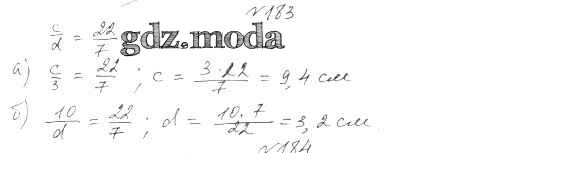 №183
c/d = 22/7 gdz.moda
а) c/3 = 22/7 ; c = 3·22/7 = 9,4 см
б) 10/d = 22/7 ; d = 10·7/22 = 3,2 см
№184